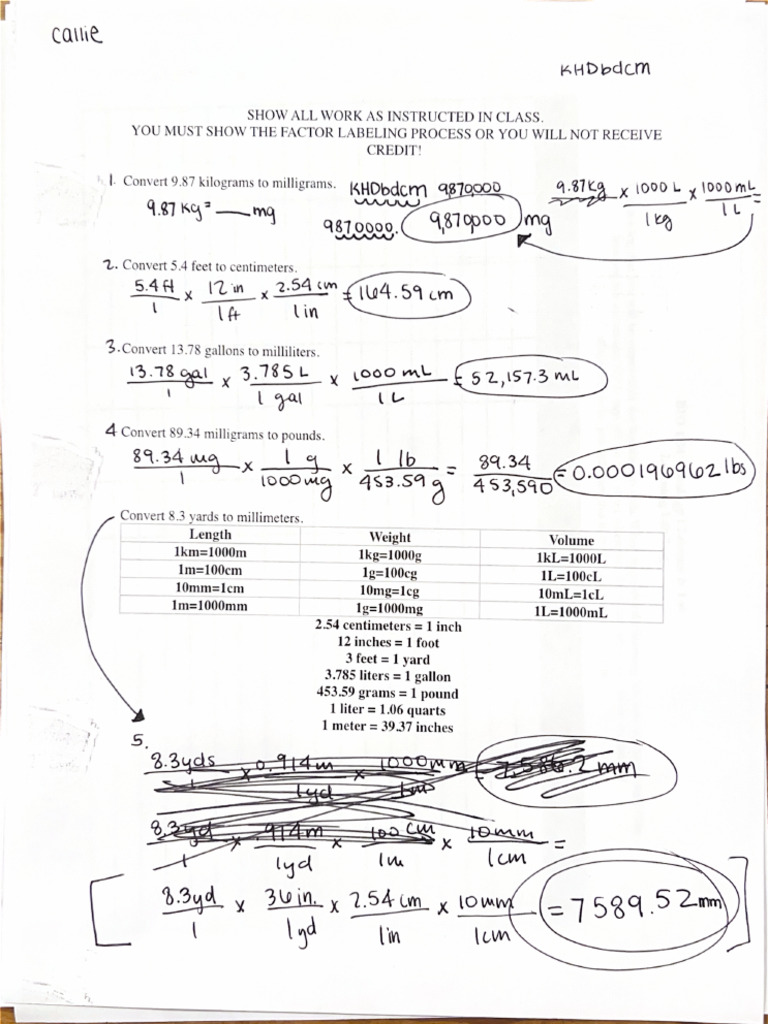 Callie
KHDbdcm
SHOW ALL WORK AS INSTRUCTED IN CLASS.
YOU MUST SHOW THE FACTOR LABELING PROCESS OR YOU WILL NOT RECEIVE
CREDIT!
1. Convert 9.87 kilograms to milligrams. KHDbdcm 9,870,000
9.87 kg = ___ mg
9870000. 9,870,000 mg
9.87 kg x 1000 L / 1 kg x 1000 mL / 1 L =
2. Convert 5.4 feet to centimeters.
5.4 ft / 1 x 12 in / 1 ft x 2.54 cm / 1 in = 164.59 cm
3. Convert 13.78 gallons to milliliters.
13.78 gal / 1 x 3.785 L / 1 gal x 1000 mL / 1 L = 52,157.3 mL
4 Convert 89.34 milligrams to pounds.
89.34 mg / 1 x 1 g / 1000 mg x 1 lb / 453.59 g = 89.34 / 453,590 = 0.000196962 lbs
Convert 8.3 yards to millimeters.
Length Weight Volume
1km=1000m 1kg=1000g 1kL=1000L
1m=100cm 1g=100cg 1L=100cL
10mm=1cm 10mg=1cg 10mL=1cL
1m=1000mm 1g=1000mg 1L=1000mL
2.54 centimeters = 1 inch
12 inches = 1 foot
3 feet = 1 yard
3.785 liters = 1 gallon
453.59 grams = 1 pound
1 liter = 1.06 quarts
1 meter = 39.37 inches
5.
8.3 yds / 1 x 0.914 m / 1 yd x 1000 mm / 1 m = 7,586.2 mm
8.3 yd / 1 x .914 m / 1 yd x 100 cm / 1 m x 10 mm / 1 cm =
8.3 yd / 1 x 36 in. / 1 yd x 2.54 cm / 1 in x 10 mm / 1 cm = 7589.52 mm